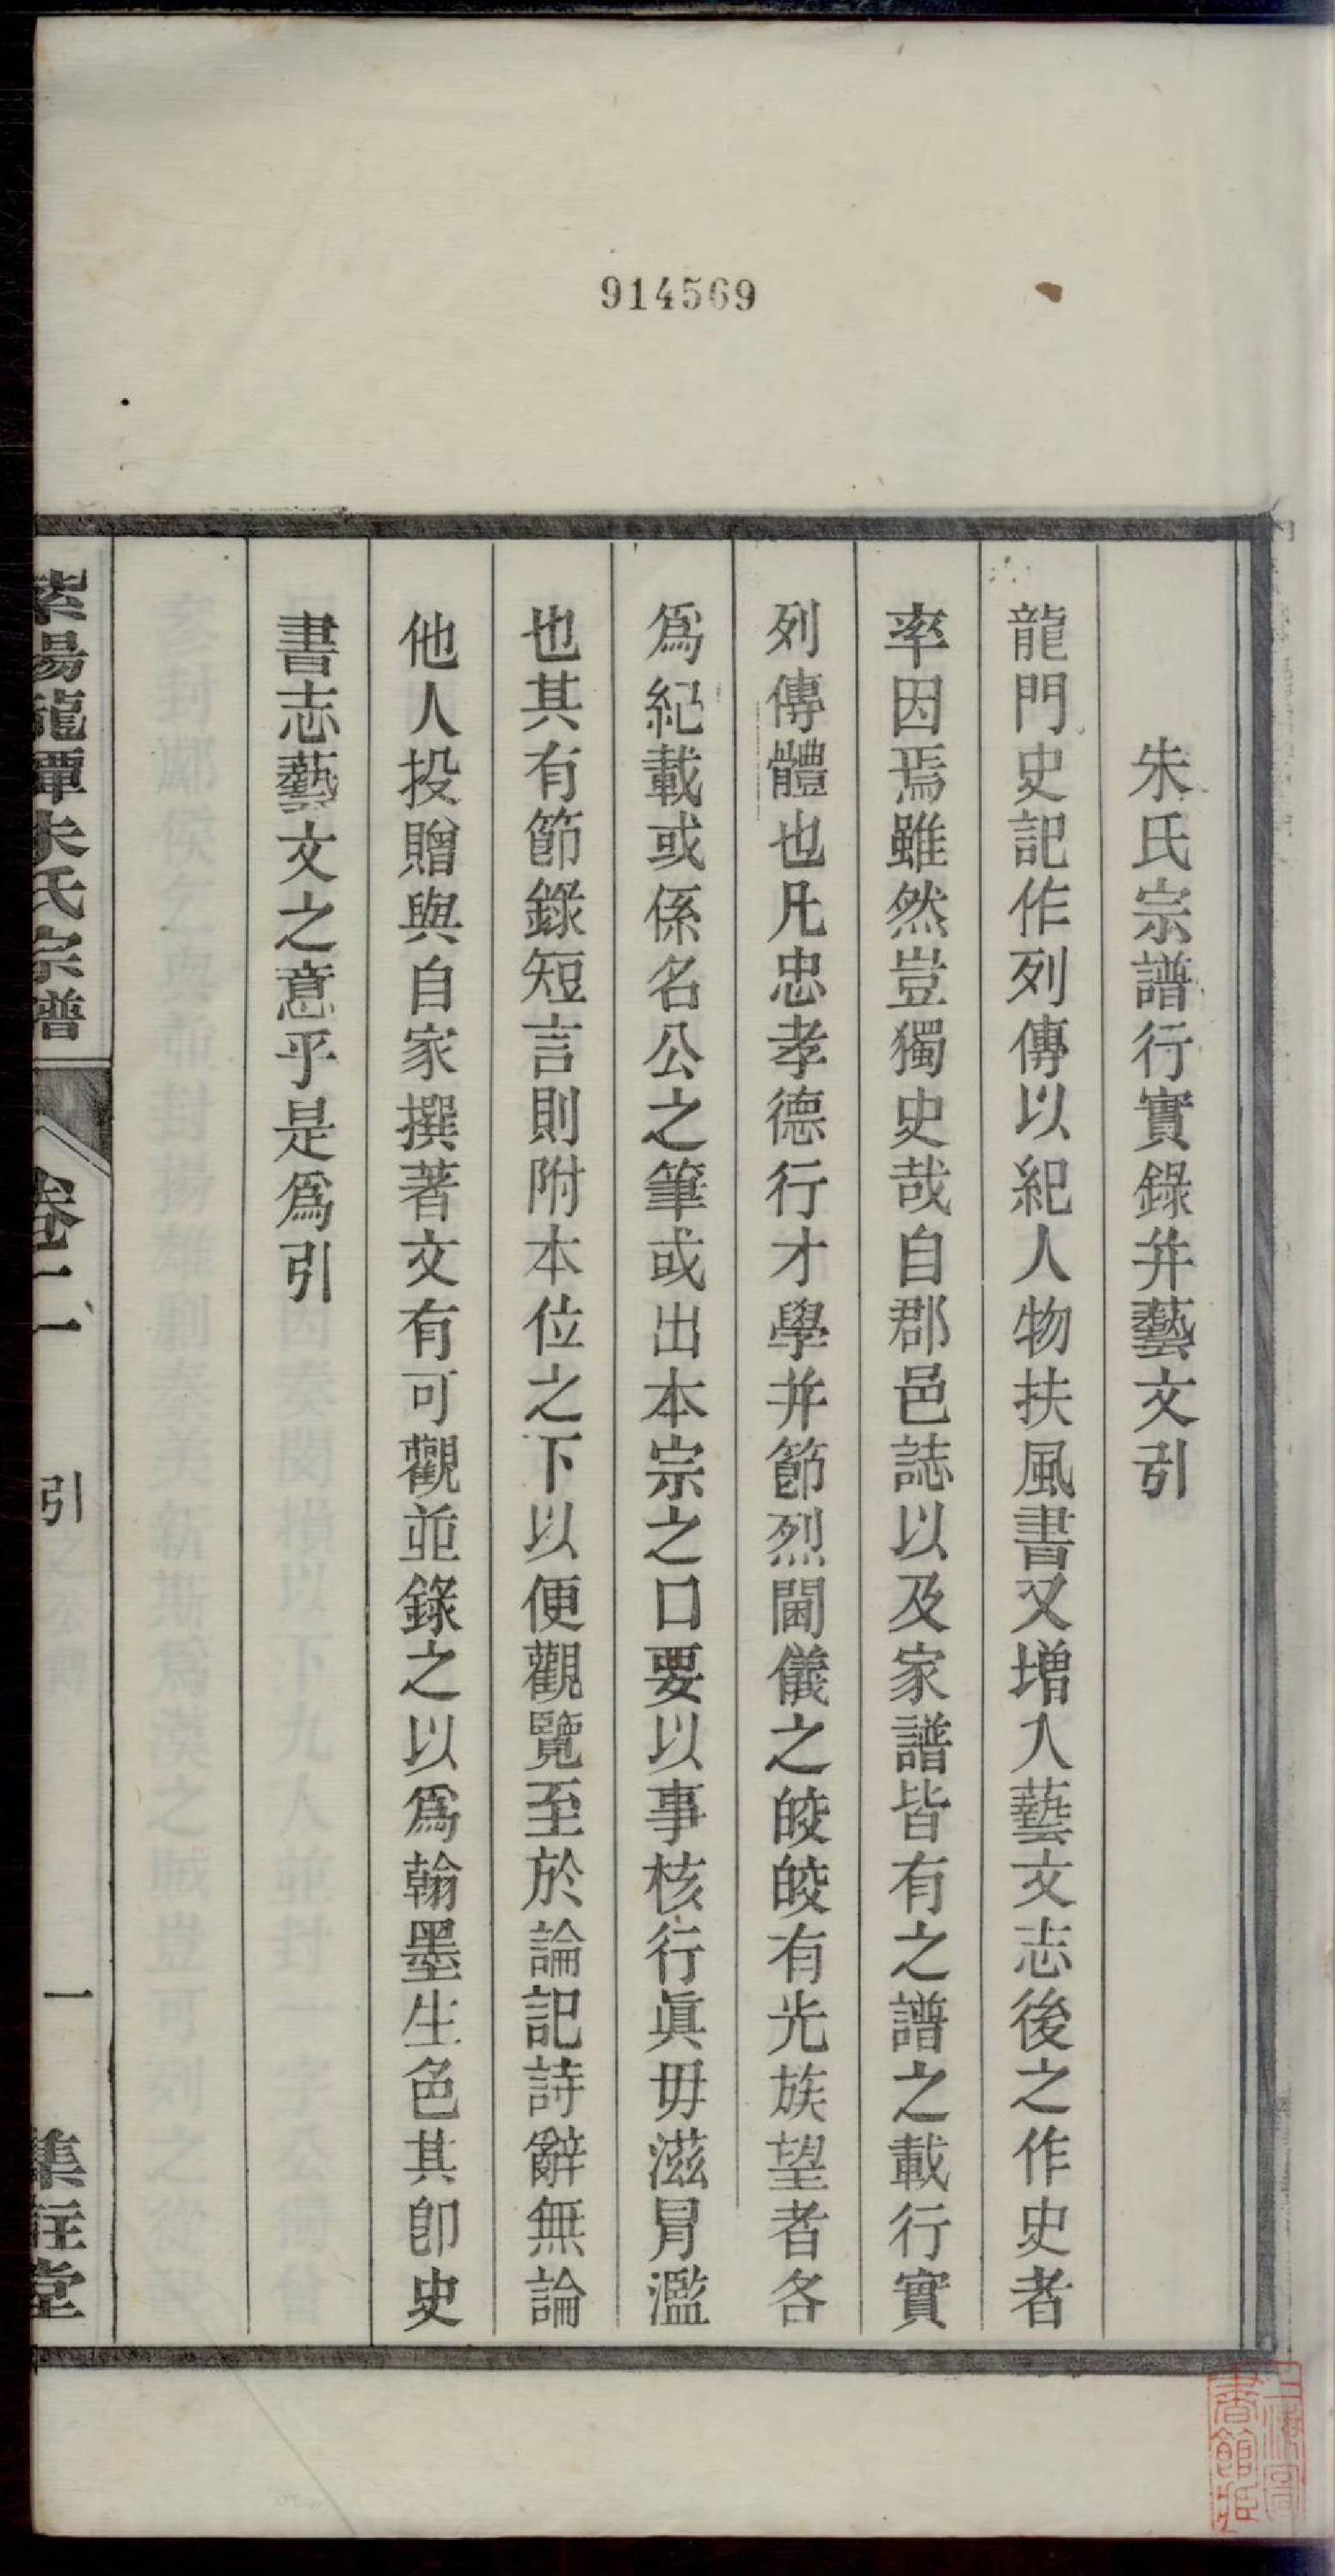 914569
朱氏宗譜行實錄并藝文引
龍門史記作列傳以紀人物扶風書又增入藝文志後之作史者
率因焉雖然豈獨史哉自郡邑誌以及家譜皆有之譜之載行實
列傳體也凡忠孝德行才學并節烈閫儀之皎皎有光族望者各
爲紀載或係名公之筆或出本宗之口要以事核行眞毋滋冐濫
也其有節錄短言則附本位之下以便觀覽至於論記詩辭無論
他人投贈與自家撰著文有可觀並錄之以爲翰墨生色其卽史
書志藝文之意乎是爲引
紫陽龍潭朱氏宗譜 卷二 引 一 集註堂
上海圖書館藏